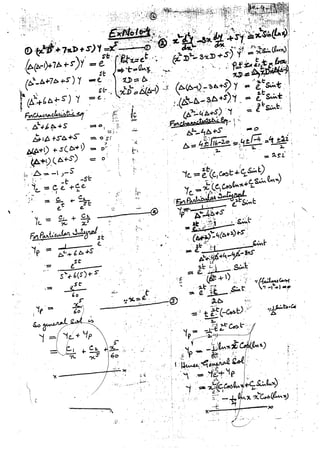 Ex No 10.4
① (x²D² + 7xD + 5) y = x⁵
(Δ(Δ-1) + 7Δ + 5) y = e^{5t}
(Δ² - Δ + 7Δ + 5) y = e^{5t}
(Δ² + 6Δ + 5) y = e^{5t}
Put x = e^t
⇒ t = ln x
xD = Δ
x²D² = Δ(Δ-1)
For characteristic eq
Δ² + 6Δ + 5 = 0
Δ² + Δ + 5Δ + 5 = 0
Δ(Δ+1) + 5(Δ+1) = 0
(Δ+1)(Δ+5) = 0
Δ = -1, -5
y_c = c₁ e^{-t} + c₂ e^{-5t}
= c₁/e^t + c₂/e^{5t}
y_c = c₁/x + c₂/x⁵
For Particular Integral
y_p = 1/(Δ² + 6Δ + 5) e^{5t}
= e^{5t}/(5² + 6(5) + 5)
= e^{5t}/60
y_p = x⁵/60 ∵ x = e^t
So general sol is
y = y_c + y_p
= c₁/x + c₂/x⁵ + x⁵/60
② x² d²y/dx² - 3x dy/dx + 5y = x² Sin(ln x)
(x²D² - 3xD + 5) y = x² Sin(ln x)
Put x = e^t, t = ln x
(Δ(Δ-1) - 3Δ + 5) y = e^{2t} Sint
(Δ² - Δ - 3Δ + 5) y = e^{2t} Sint
(Δ² - 4Δ + 5) y = e^{2t} Sint
For characteristic eq.
Δ² - 4Δ + 5 = 0
Δ = (4 ± √(16-20))/2 = (4 ± √-4)/2 = (4 ± 2i)/2
= 2 ± i
y_c = e^{2t} (c₁ Cost + c₂ Sint)
y_c = x² (c₁ Cos ln x + c₂ Sin ln x)
For Particular Integral
y_p = 1/(Δ² - 4Δ + 5) e^{2t} Sint
= e^{2t} 1/((Δ+2)² - 4(Δ+2) + 5) Sint
= e^{2t} 1/(Δ² + 4Δ + 4 - 4Δ - 8 + 5) Sint
= e^{2t} 1/(Δ² + 1) Sint
= e^{2t} t/2Δ Sint
= t/2 e^{2t} (-Cost)
y_p = -t/2 e^{2t} Cost
y_p = -1/2 ln x x² Cos(ln x)
Hence General Sol
y = y_c + y_p
y = x² (c₁ Cos ln x + c₂ Sin ln x)
- 1/2 ln x x² Cos(ln x)